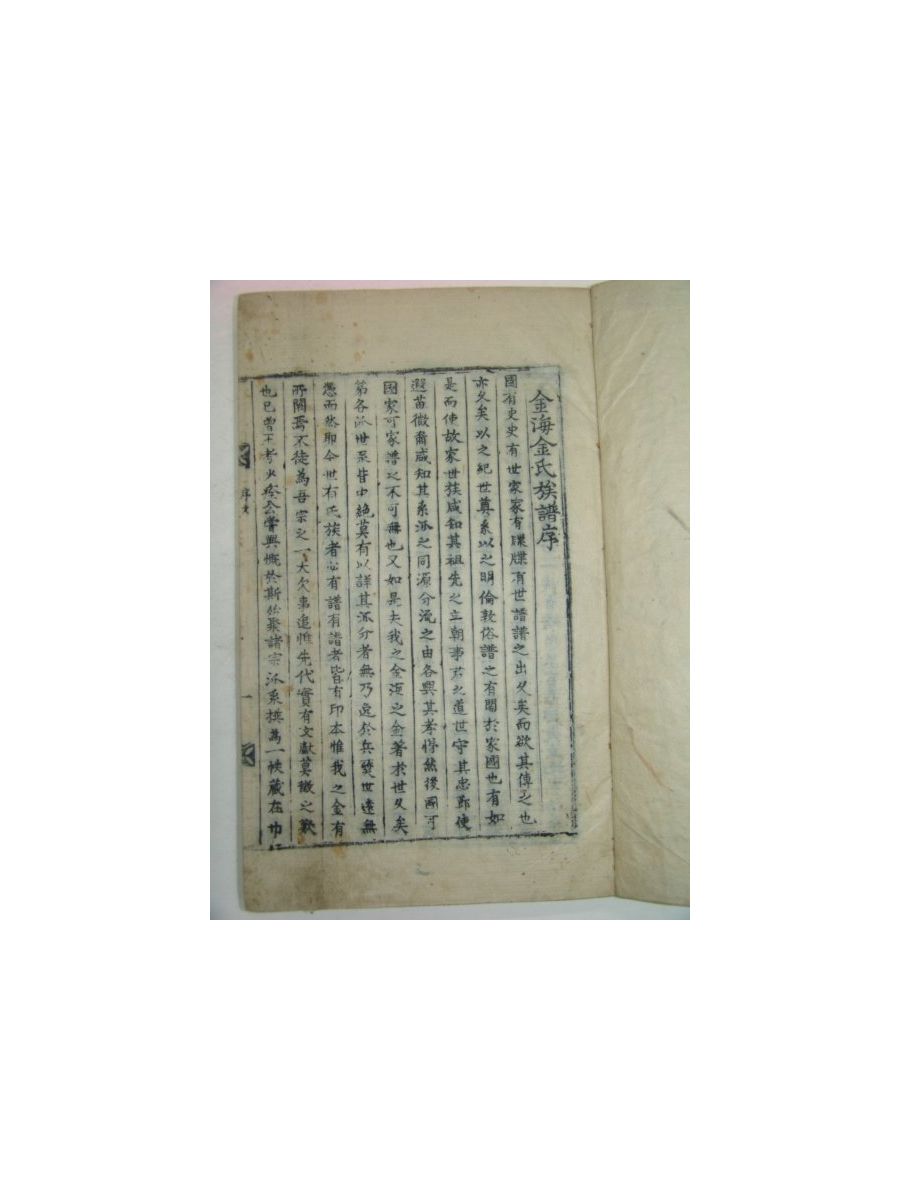 金海金氏族譜序
國有史史有世家家有牒牒有世譜譜之出久矣而欲其傳之也
亦久矣以之紀世奠系以之明倫敦俗譜之有關於家國也有如
是而使故家世族咸知其祖先之立朝事君之道世守其忠節使
遐苗微裔咸知其系派之同源分流之由各興其孝悌然後國可
國家可家譜之不可無也又如是夫我之金海之金著於世久矣
第各派世系皆中絶莫有以詳其派分者無乃逸於兵燹世遠無
憑而然耶今世有氏族者必有譜有譜者皆有印本惟我之金有
所闕焉不徒為吾宗之一大欠事追惟先代實有文獻莫徵之歎
也已曾王考 公嘗興慨於斯然聚諸宗派系撰為一帙藏在巾
序文
一